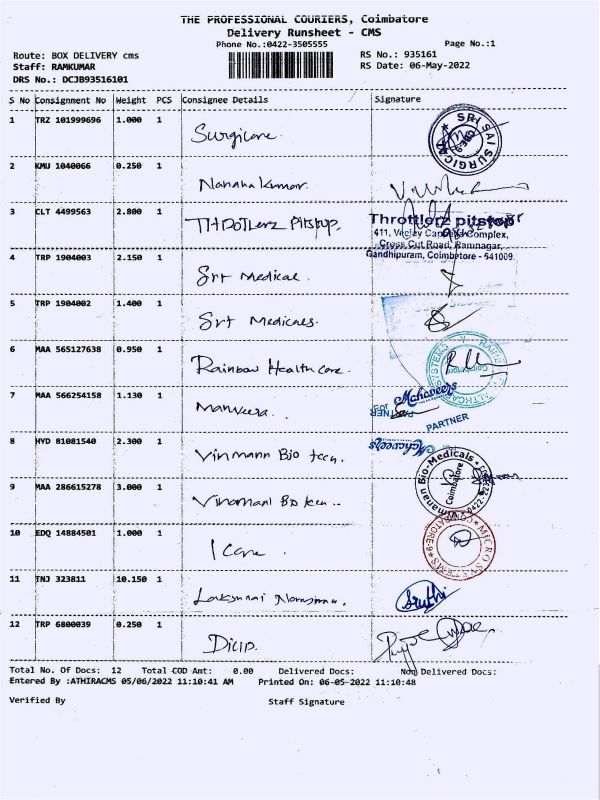 THE PROFESSIONAL COURIERS, Coimbatore
Delivery Runsheet - CMS
Phone No.:0422-3505555
Page No.:1
Route: BOX DELIVERY cms
RS No.: 935161
Staff: RAMKUMAR
RS Date: 06-May-2022
DRS No.: DCJB93516101
S No Consignment No Weight PCS Consignee Details Signature
1 TRZ 101999696 1.000 1 Surgicare.
SRI SAI SURGICAL
2 KMU 1040066 0.250 1 Kumar.
3 CLT 4499563 2.800 1 THDOTLerz Pitstop.
Throttlerz pitstop
Complex,
Cross Cut Road, Ramnagar,
Gandhipuram, Coimbatore - 641009.
4 TRP 1904003 2.150 1 Srt Medical.
5 TRP 1904002 1.400 1 Srt Medicals.
6 MAA 565127638 0.950 1 Rainbow Health care.
7 MAA 566254158 1.130 1
Mahaveers
PARTNER
8 HYD 81081540 2.300 1 Vinmann Bio tech.
Mahaveers
Vimanan Bio-Medicals
Coimbatore
9 MAA 286615278 3.000 1 Bio tech..
10 EDQ 14884501 1.000 1 I Care.
MICRO SYSTEMS
COIMBATORE-9
11 TNJ 323811 10.150 1 Lakshmi
Sruthi
12 TRP 6800039 0.250 1 Dilip.
Total No. Of Docs: 12 Total COD Amt: 0.00 Delivered Docs: Non Delivered Docs:
Entered By :ATHIRACMS 05/06/2022 11:10:41 AM Printed On: 06-05-2022 11:10:48
Verified By Staff Signature